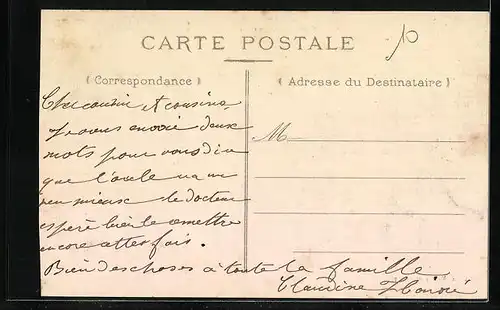 CARTE POSTALE
10
( Correspondance )
( Adresse du Destinataire )
M
Cher cousin et cousine
Je vous envoie deux
mots pour vous dire
que l'oncle va un
peu mieux le docteur
espère bien le remettre
encore cette fois.
Bien des choses à toute la famille
Claudine